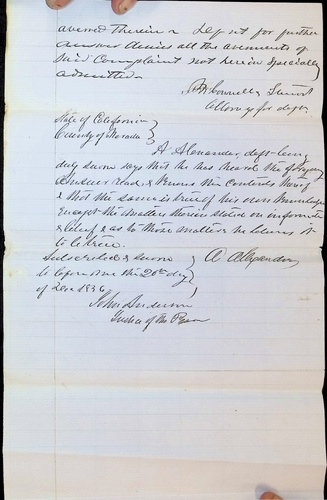 averred therein & Deft for further
answer denies all the averments of
said Complaint not herein specially
admitted
Attorney for deft
State of California }
County of Nevada }
A Alexander deft being
duly sworn says that he has heard the foregoing
Answer read, & knows the Contents thereof
& that the same is true of his own knowledge
except the matters therein stated on information
& belief & as to those matters he believes it
to be true.
Subscribed & sworn } A Alexander
to before me this 20th day }
of 1856 }
John Anderson
Justice of the Peace